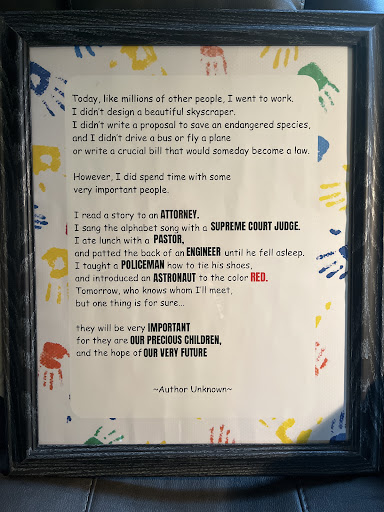 Today, like millions of other people, I went to work.
I didn't design a beautiful skyscraper.
I didn't write a proposal to save an endangered species,
and I didn't drive a bus or fly a plane
or write a crucial bill that would someday become a law.
However, I did spend time with some
very important people.
I read a story to an ATTORNEY.
I sang the alphabet song with a SUPREME COURT JUDGE.
I ate lunch with a PASTOR,
and patted the back of an ENGINEER until he fell asleep.
I taught a POLICEMAN how to tie his shoes,
and introduced an ASTRONAUT to the color RED.
Tomorrow, who knows whom I'll meet,
but one thing is for sure...
they will be very IMPORTANT
for they are OUR PRECIOUS CHILDREN,
and the hope of OUR VERY FUTURE
~Author Unknown~